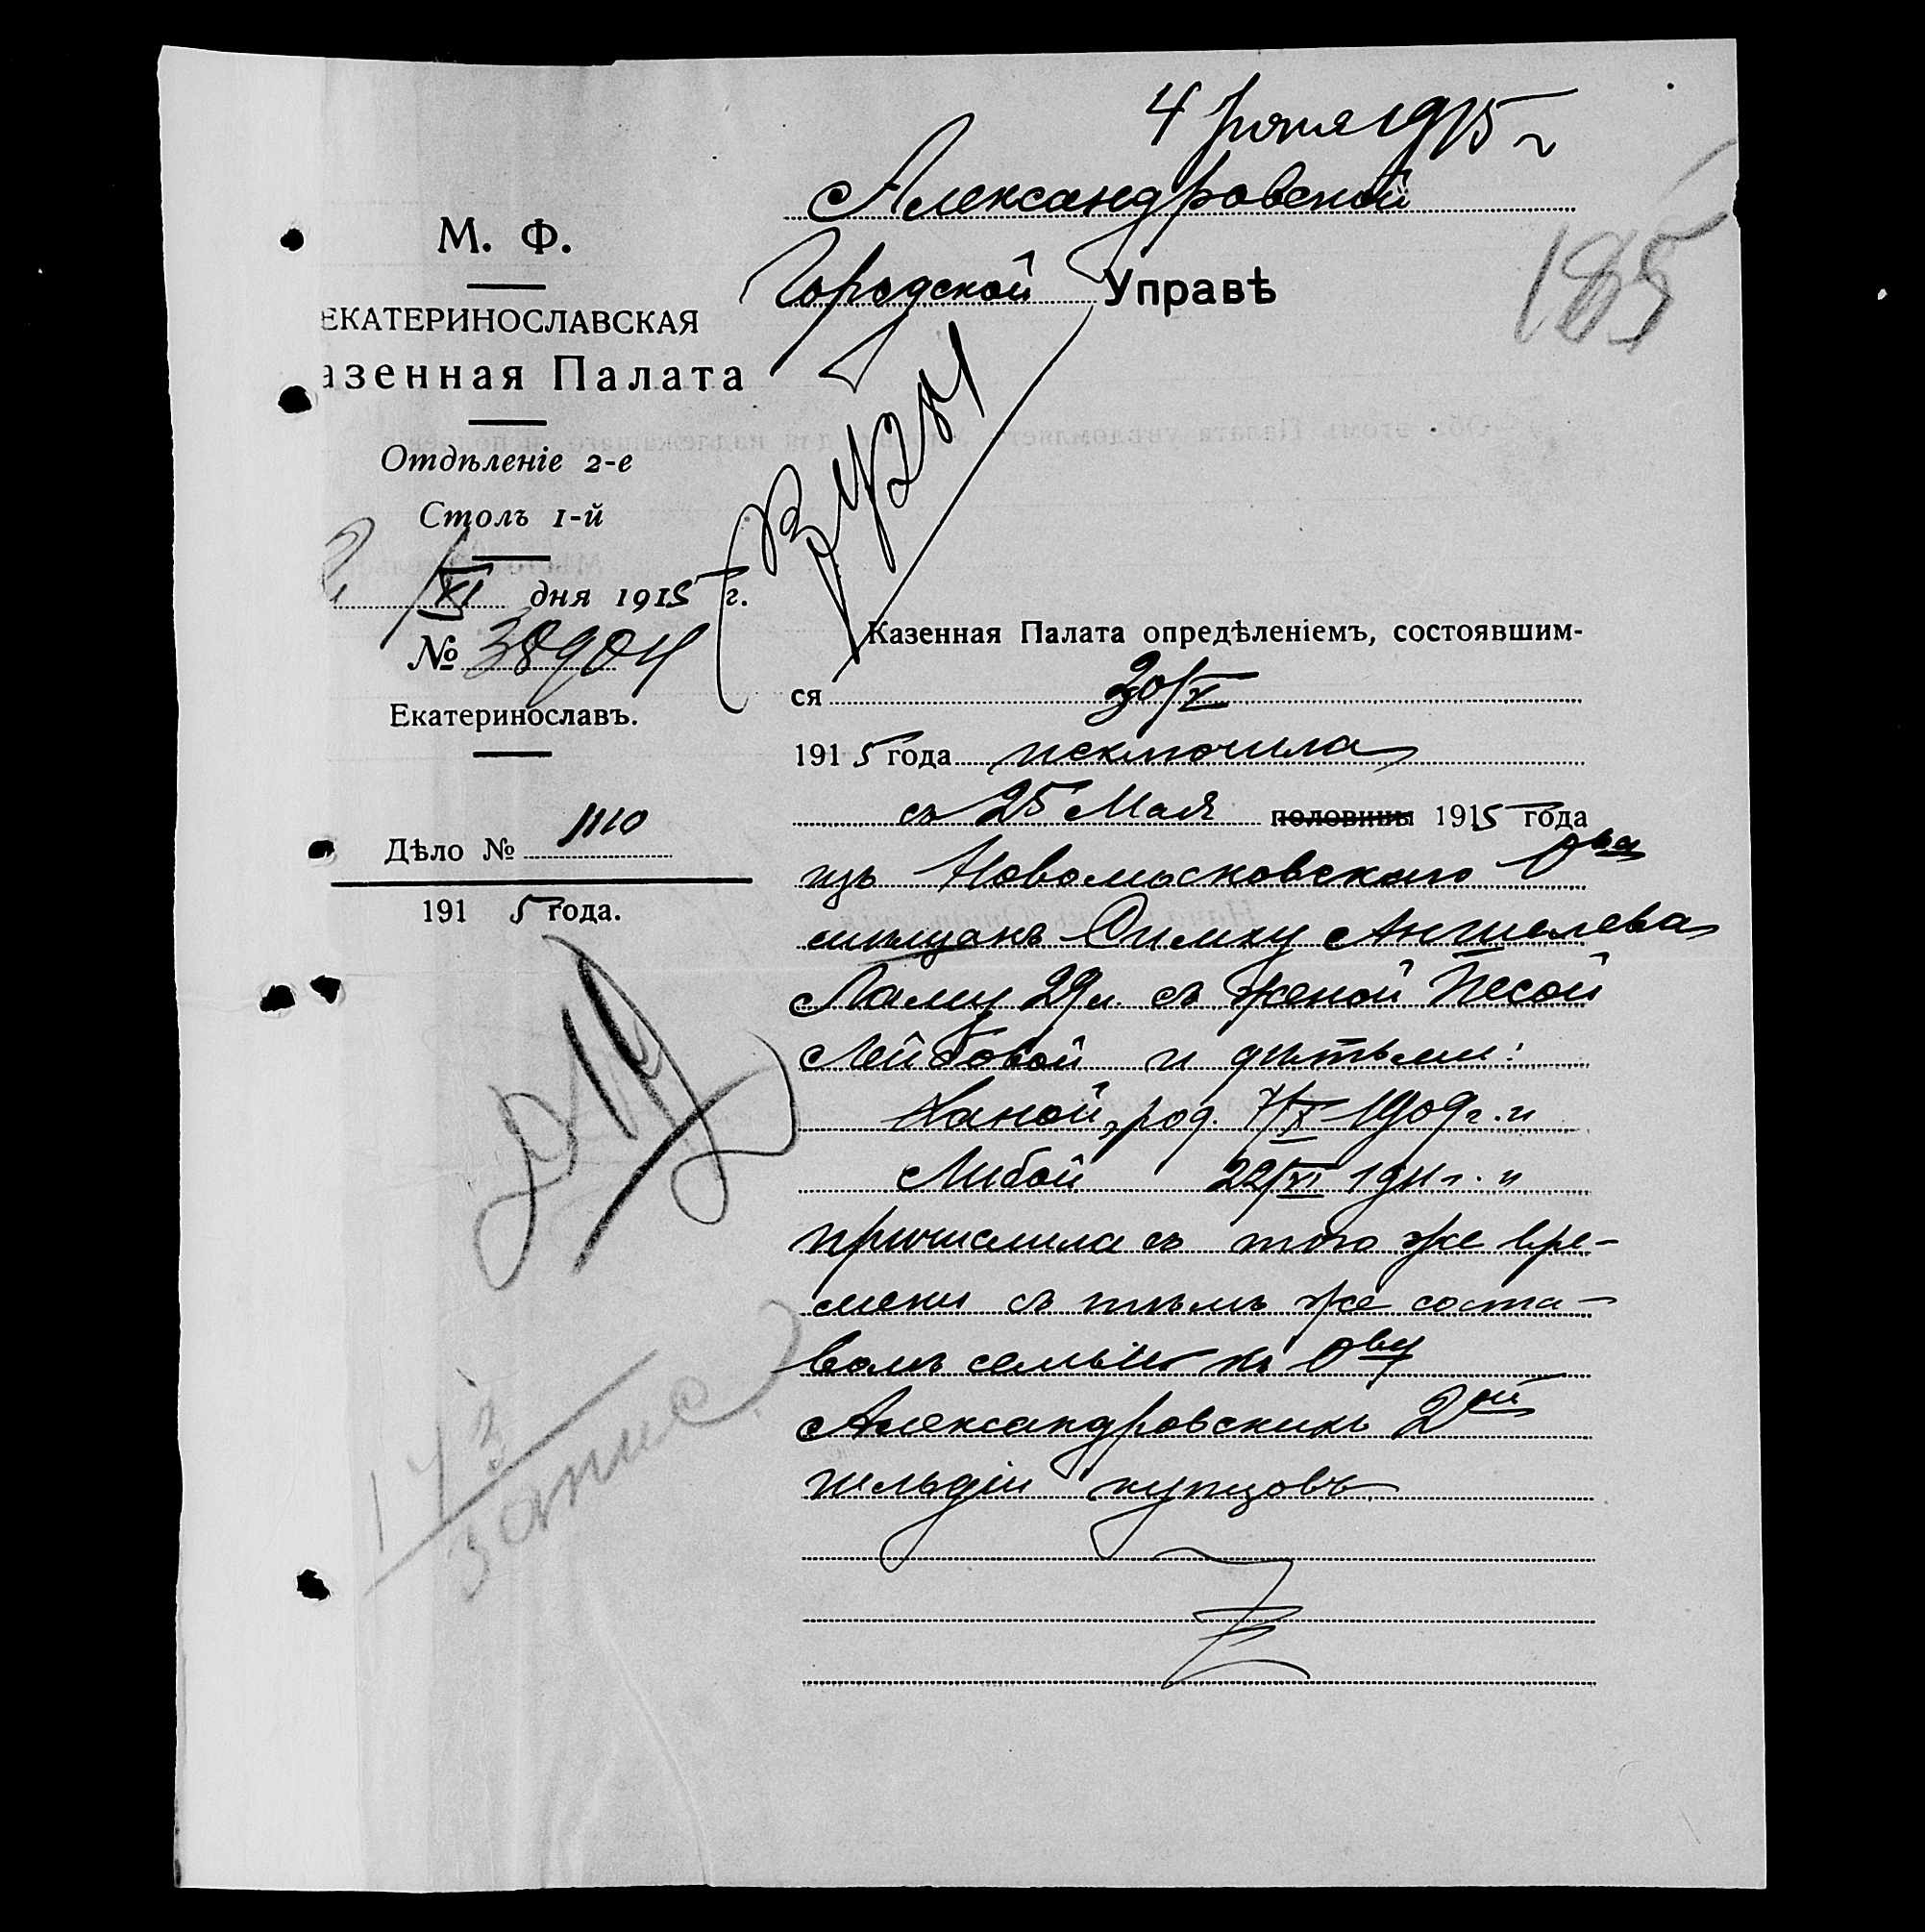 4 Іюня 1915 г
Александровской
Городской Управѣ
185
М. Ф.
ЕКАТЕРИНОСЛАВСКАЯ
азенная Палата
Отдѣленіе 2-е
Столъ 1-й
2/VI дня 1915 г.
№ 38904
Екатеринославъ.
Дѣло № 1110
1915 года.
Казенная Палата опредѣленіемъ, состоявшим-
ся 30/V
1915 года исключила
съ 25 Мая половины 1915 года
изъ Новомосковскаго О-ва
мѣщанъ Симху Аншелева
Ламу 29 л. съ женой Песой
Лейбовой и дѣтьми:
Ханой, род. 7/IX 1909 г. и
Либой 22/VI 1911 г. и
причислила съ того же вре-
мени съ тѣмъ же соста-
вомъ семьи къ О-ву
Александровскихъ 2ой
гильдіи купцовъ
173